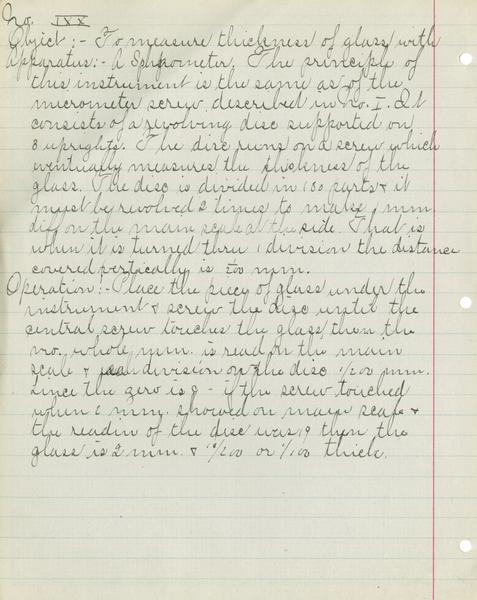 No. IXX
Object:- To measure thickness of glass with
Apparatus:- A Spherometer. The principle of
this instrument is the same as of the
micrometer screw, described in No. I. It
consists of a revolving disc supported on
3 uprights. The disc runs on a screw which
eventually measures the thickness of the
glass. The disc is divided in 100 parts & it
must be revolved 2 times to make 1 mm
diff on the main scale at the side. That is
when it is turned thru 1 division the distance
covered vertically is 1/200 mm.
Operation:- Place the piece of glass under the
instrument & screw the disc until the
central screw touches the glass, then the
no. whole mm. is read on the main
scale & each division on the disc 1/200 mm.
Since the zero is 9 - if the screw touched
when 2 mm. showed on main scale &
the readin of the disc was 19 then the
glass is 2 mm. & 10/200 or 5/100 thick.